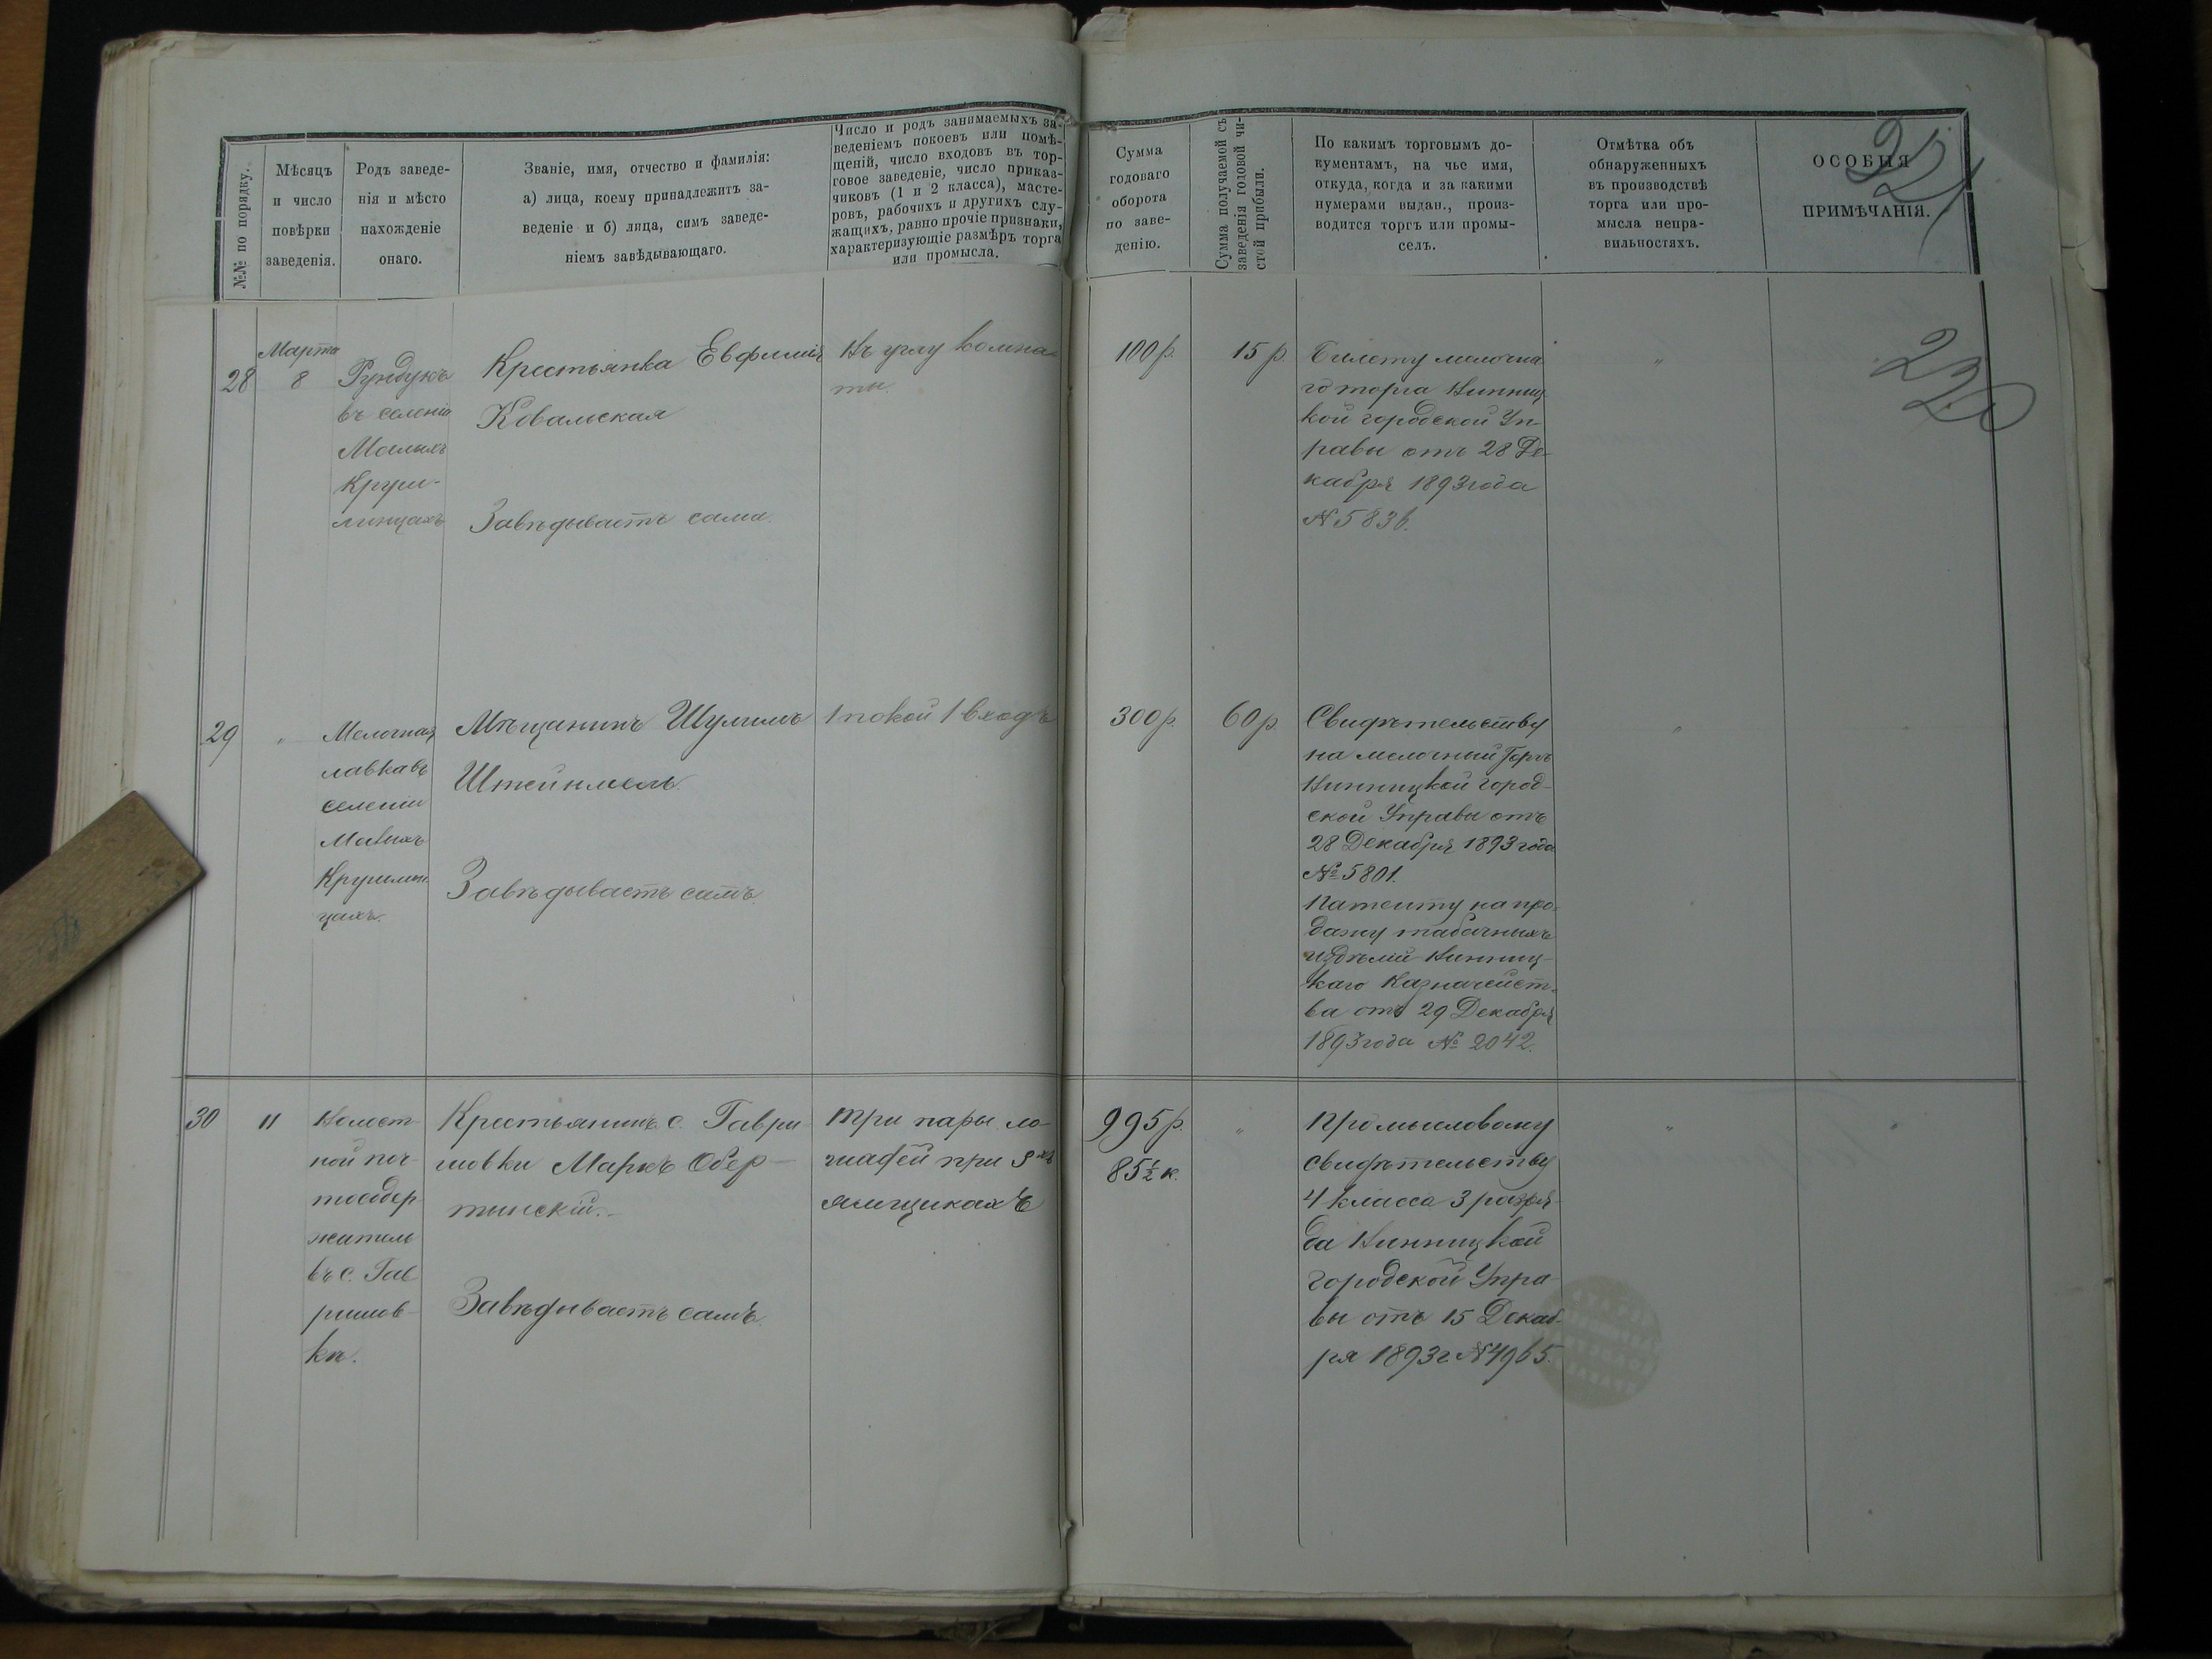 №№ по порядку.
Мѣсяцъ
и число
повѣрки
заведенія.
Родъ заведе-
нія и мѣсто
нахожденіе
онаго.
Званіе, имя, отчество и фамилія:
а) лица, коему принадлежитъ за-
веденіе и б) лица, симъ заведе-
ніемъ завѣдывающаго.
Число и родъ занимаемыхъ за-
веденіемъ покоевъ или помѣ-
щеній, число входовъ въ тор-
говое заведеніе, число приказ-
чиковъ (1 и 2 класса), масте-
ровъ, рабочихъ и другихъ слу-
жащихъ, равно прочіе признаки,
характеризующіе размѣръ торга
или промысла.
Сумма
годоваго
оборота
по заве-
денію.
Сумма получаемой съ
заведенія годовой чи-
стой прибыли.
По какимъ торговымъ до-
кументамъ, на чье имя,
откуда, когда и за какими
нумерами выдан., произ-
водится торгъ или промы-
селъ.
Отмѣтка объ
обнаруженныхъ
въ производствѣ
торга или про-
мысла непра-
вильностяхъ.
ОСОБЫЯ
ПРИМѢЧАНІЯ.
221
220
28
Марта
8
Рундукъ
въ селеніи
Малыхъ
Крущ-
линцахъ
Крестьянка Евфимія
Ковальская
Завѣдываетъ сама.
Въ углу комна-
ты.
100 р.
15 р.
Билету мелочна
го торга Винниц
кой городской Уп-
равы отъ 28 Де-
кабря 1893 года
№ 5836.
"
29
"
Мелочная
лавка въ
селеніи
Малыхъ
Крушлин-
цахъ.
Мѣщанинъ Шулимъ
Штейнмель.
Завѣдываетъ самъ
1 покой 1 входъ
300 р.
60 р.
Свидѣтельству
на мелочный Торгъ
Винницкой город-
ской Управы отъ
28 Декабря 1893 года
№ 5801.
Патенту на про-
дажу табачныхъ
издѣлій Винниц-
каго Казначейст-
ва отъ 29 Декабря
1893 года № 2042.
"
30
11
Волост-
ной поч-
тосодер
житель
въ с. Гав
ришов-
кѣ.
Крестьянинъ с. Гаври
шовки Маркъ Обер-
тынскій.
Завѣдываетъ самъ.
три пары ло-
шадей при 3хъ
ямщикахъ
995 р.
85½ к.
"
Промысловому
свидѣтельству
4 класса 3 разря-
да Винницкой
городской Упра-
вы отъ 15 Декаб-
ря 1893 г № 4965.
"